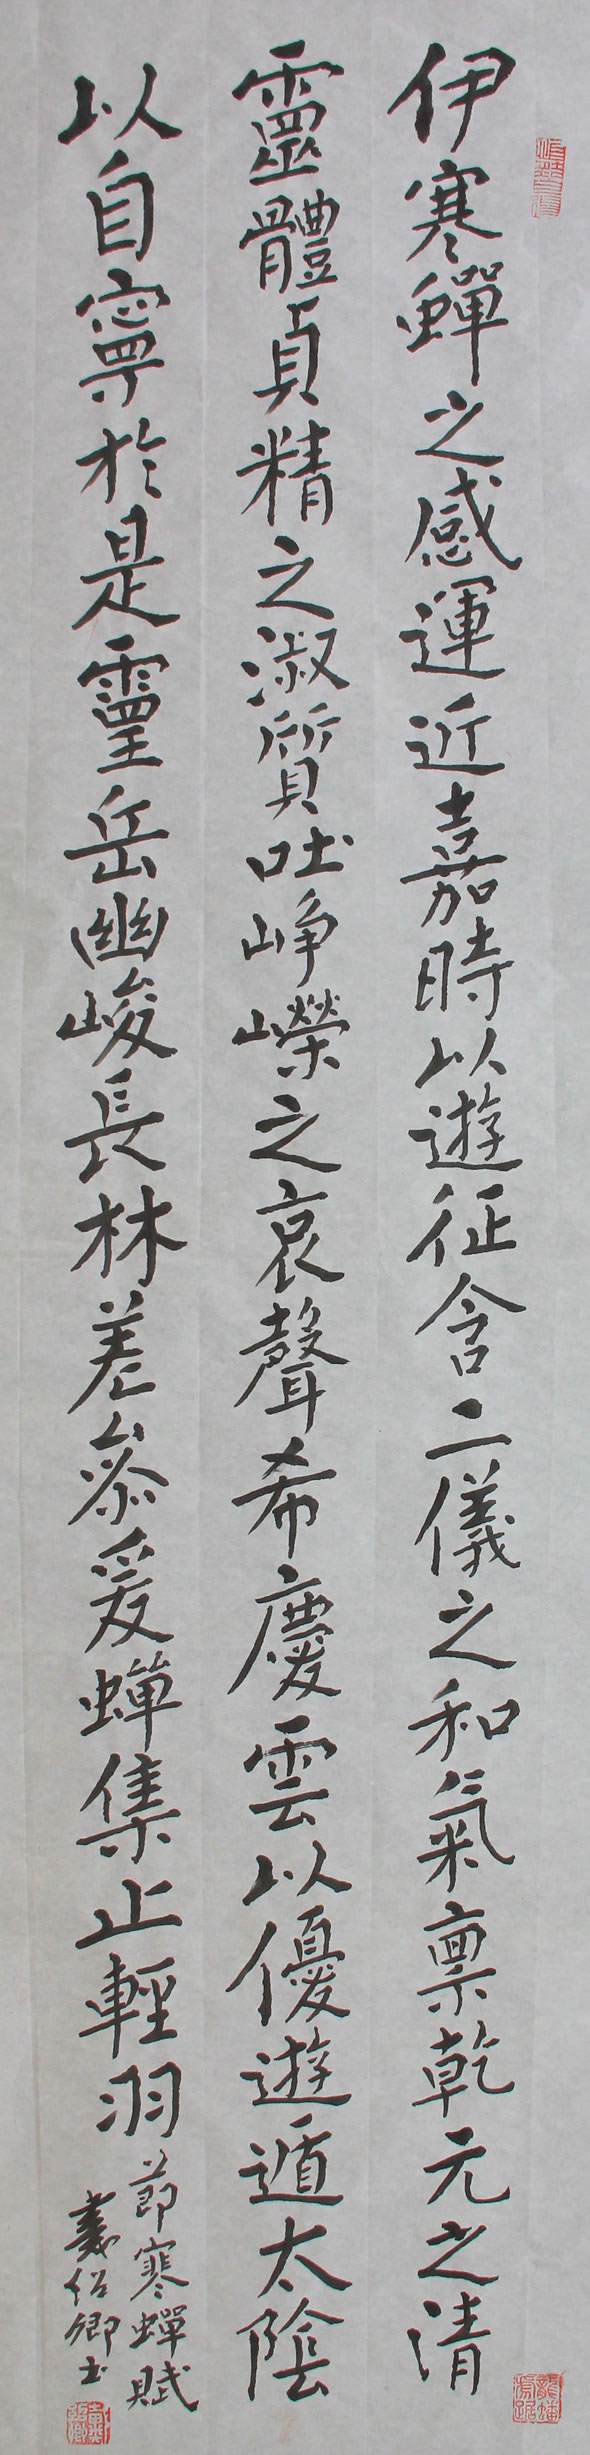 伊寒蟬之感運近嘉時以遊征含二儀之和氣禀乾元之清
靈體貞精之淑質吐崢嶸之哀聲希慶雲以優遊遁太陰
以自寧於是靈岳幽峻長林參差爰蟬集止輕羽
節寒蟬賦
紹卿书